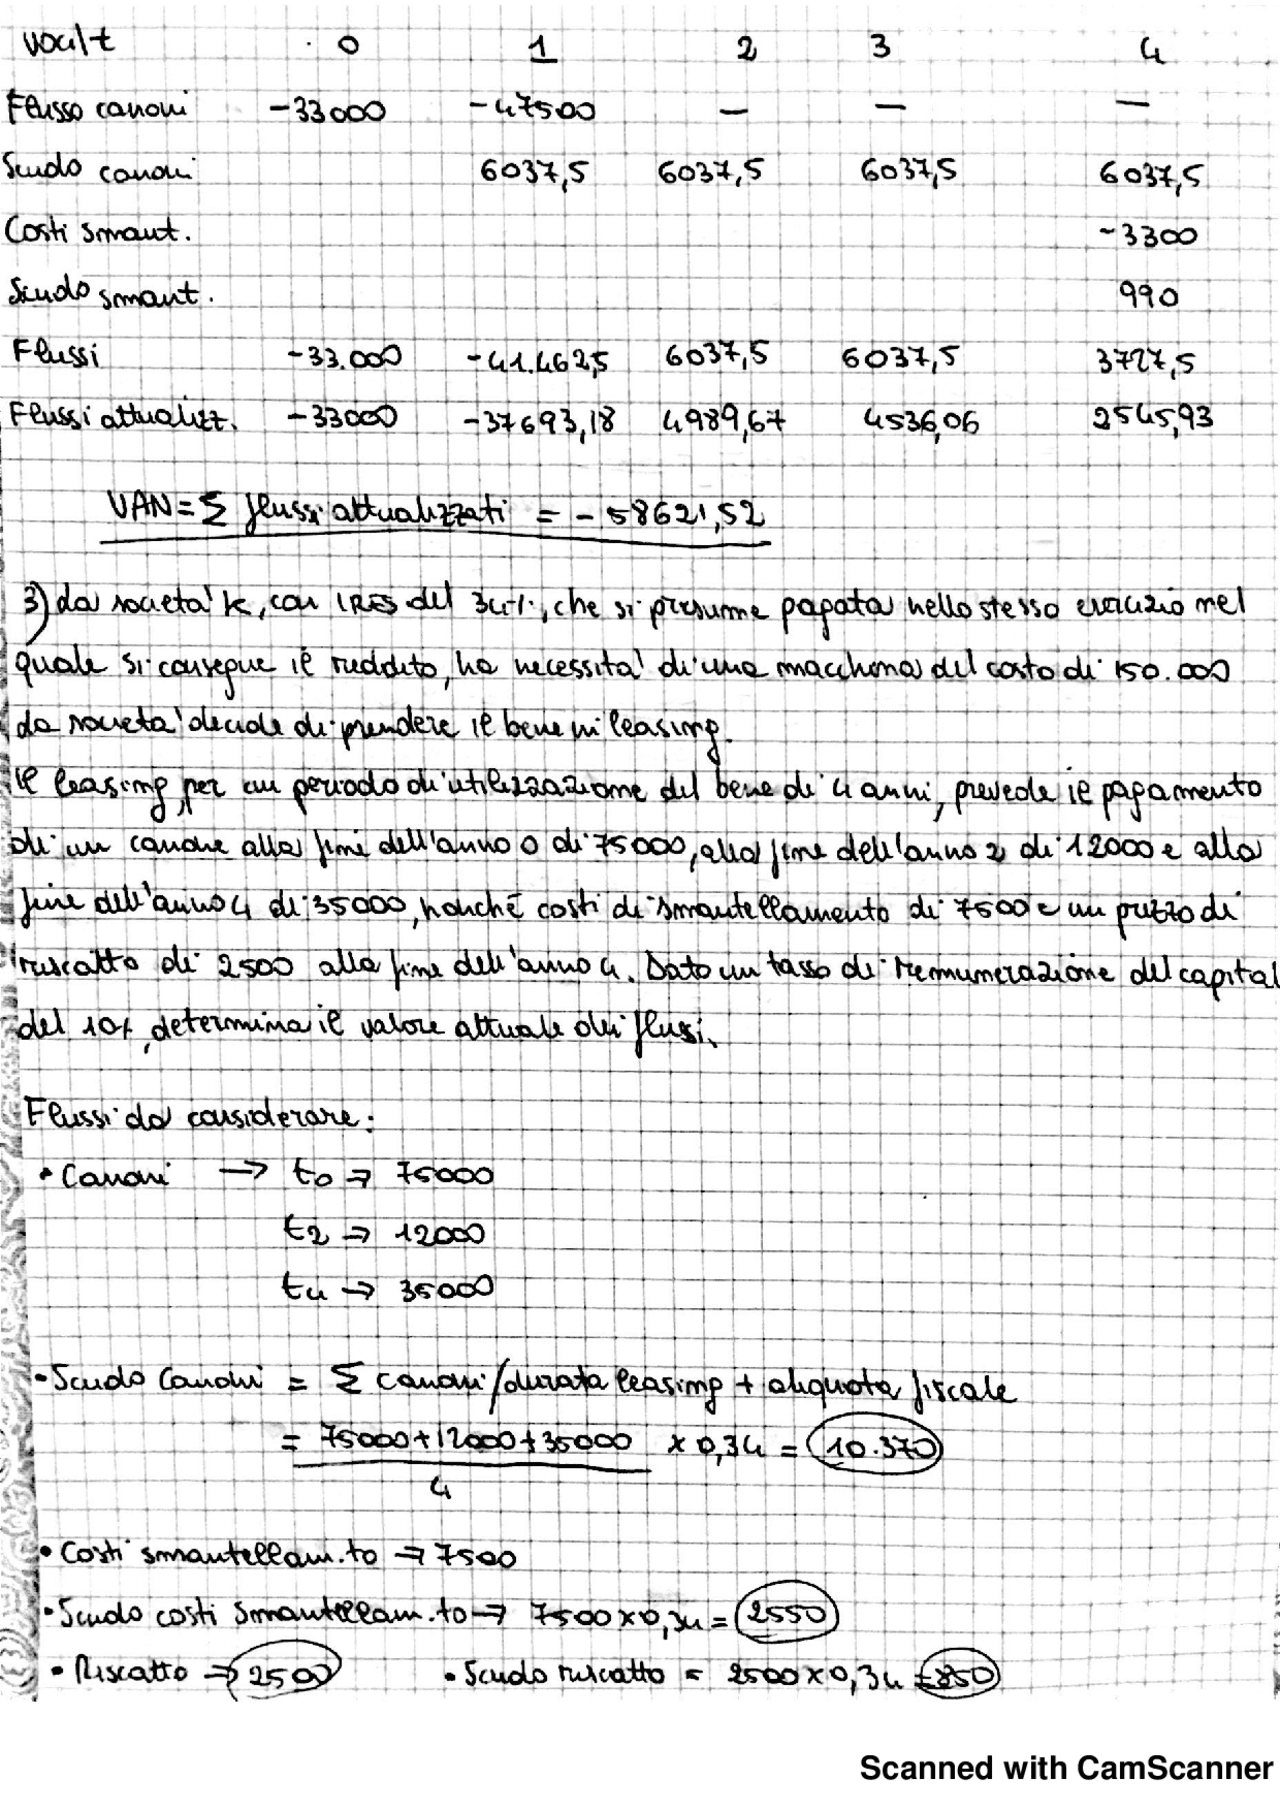 voci/t 0 1 2 3 4
Flusso canoni -33000 -47500 — — —
Scudo canoni 6037,5 6037,5 6037,5 6037,5
Costi smant. -3300
Scudo smant. 990
Flussi -33.000 -41.462,5 6037,5 6037,5 3727,5
Flussi attualizz. -33000 -37693,18 4989,67 4536,06 2545,93
VAN = Σ flussi attualizzati = -58621,52
3) La societa' K, con IRES del 34%, che si presume pagata nello stesso esercizio nel
quale si consegue il reddito, ha necessita' di una macchina del costo di 150.000
La societa' decide di prendere il bene in leasing.
Il leasing, per un periodo di utilizzazione del bene di 4 anni, prevede il pagamento
di un canone alla fine dell'anno 0 di 75000, alla fine dell'anno 2 di 12000 e alla
fine dell'anno 4 di 35000, nonché costi di smantellamento di 7500 e un prezzo di
riscatto di 2500 alla fine dell'anno 4. Dato un tasso di remunerazione del capital
del 10%, determina il valore attuale dei flussi.
Flussi da considerare:
• Canoni → t0 → 75000
t2 → 12000
t4 → 35000
• Scudo Canoni = Σ canoni/durata leasing + aliquota fiscale
= 75000+12000+35000 x 0,34 = 10.370
4
• Costi smantellam.to → 7500
• Scudo costi smantellam.to → 7500x0,34 = 2550
• Riscatto → 2500 • Scudo riscatto = 2500x0,34 = 850
Scanned with CamScanner